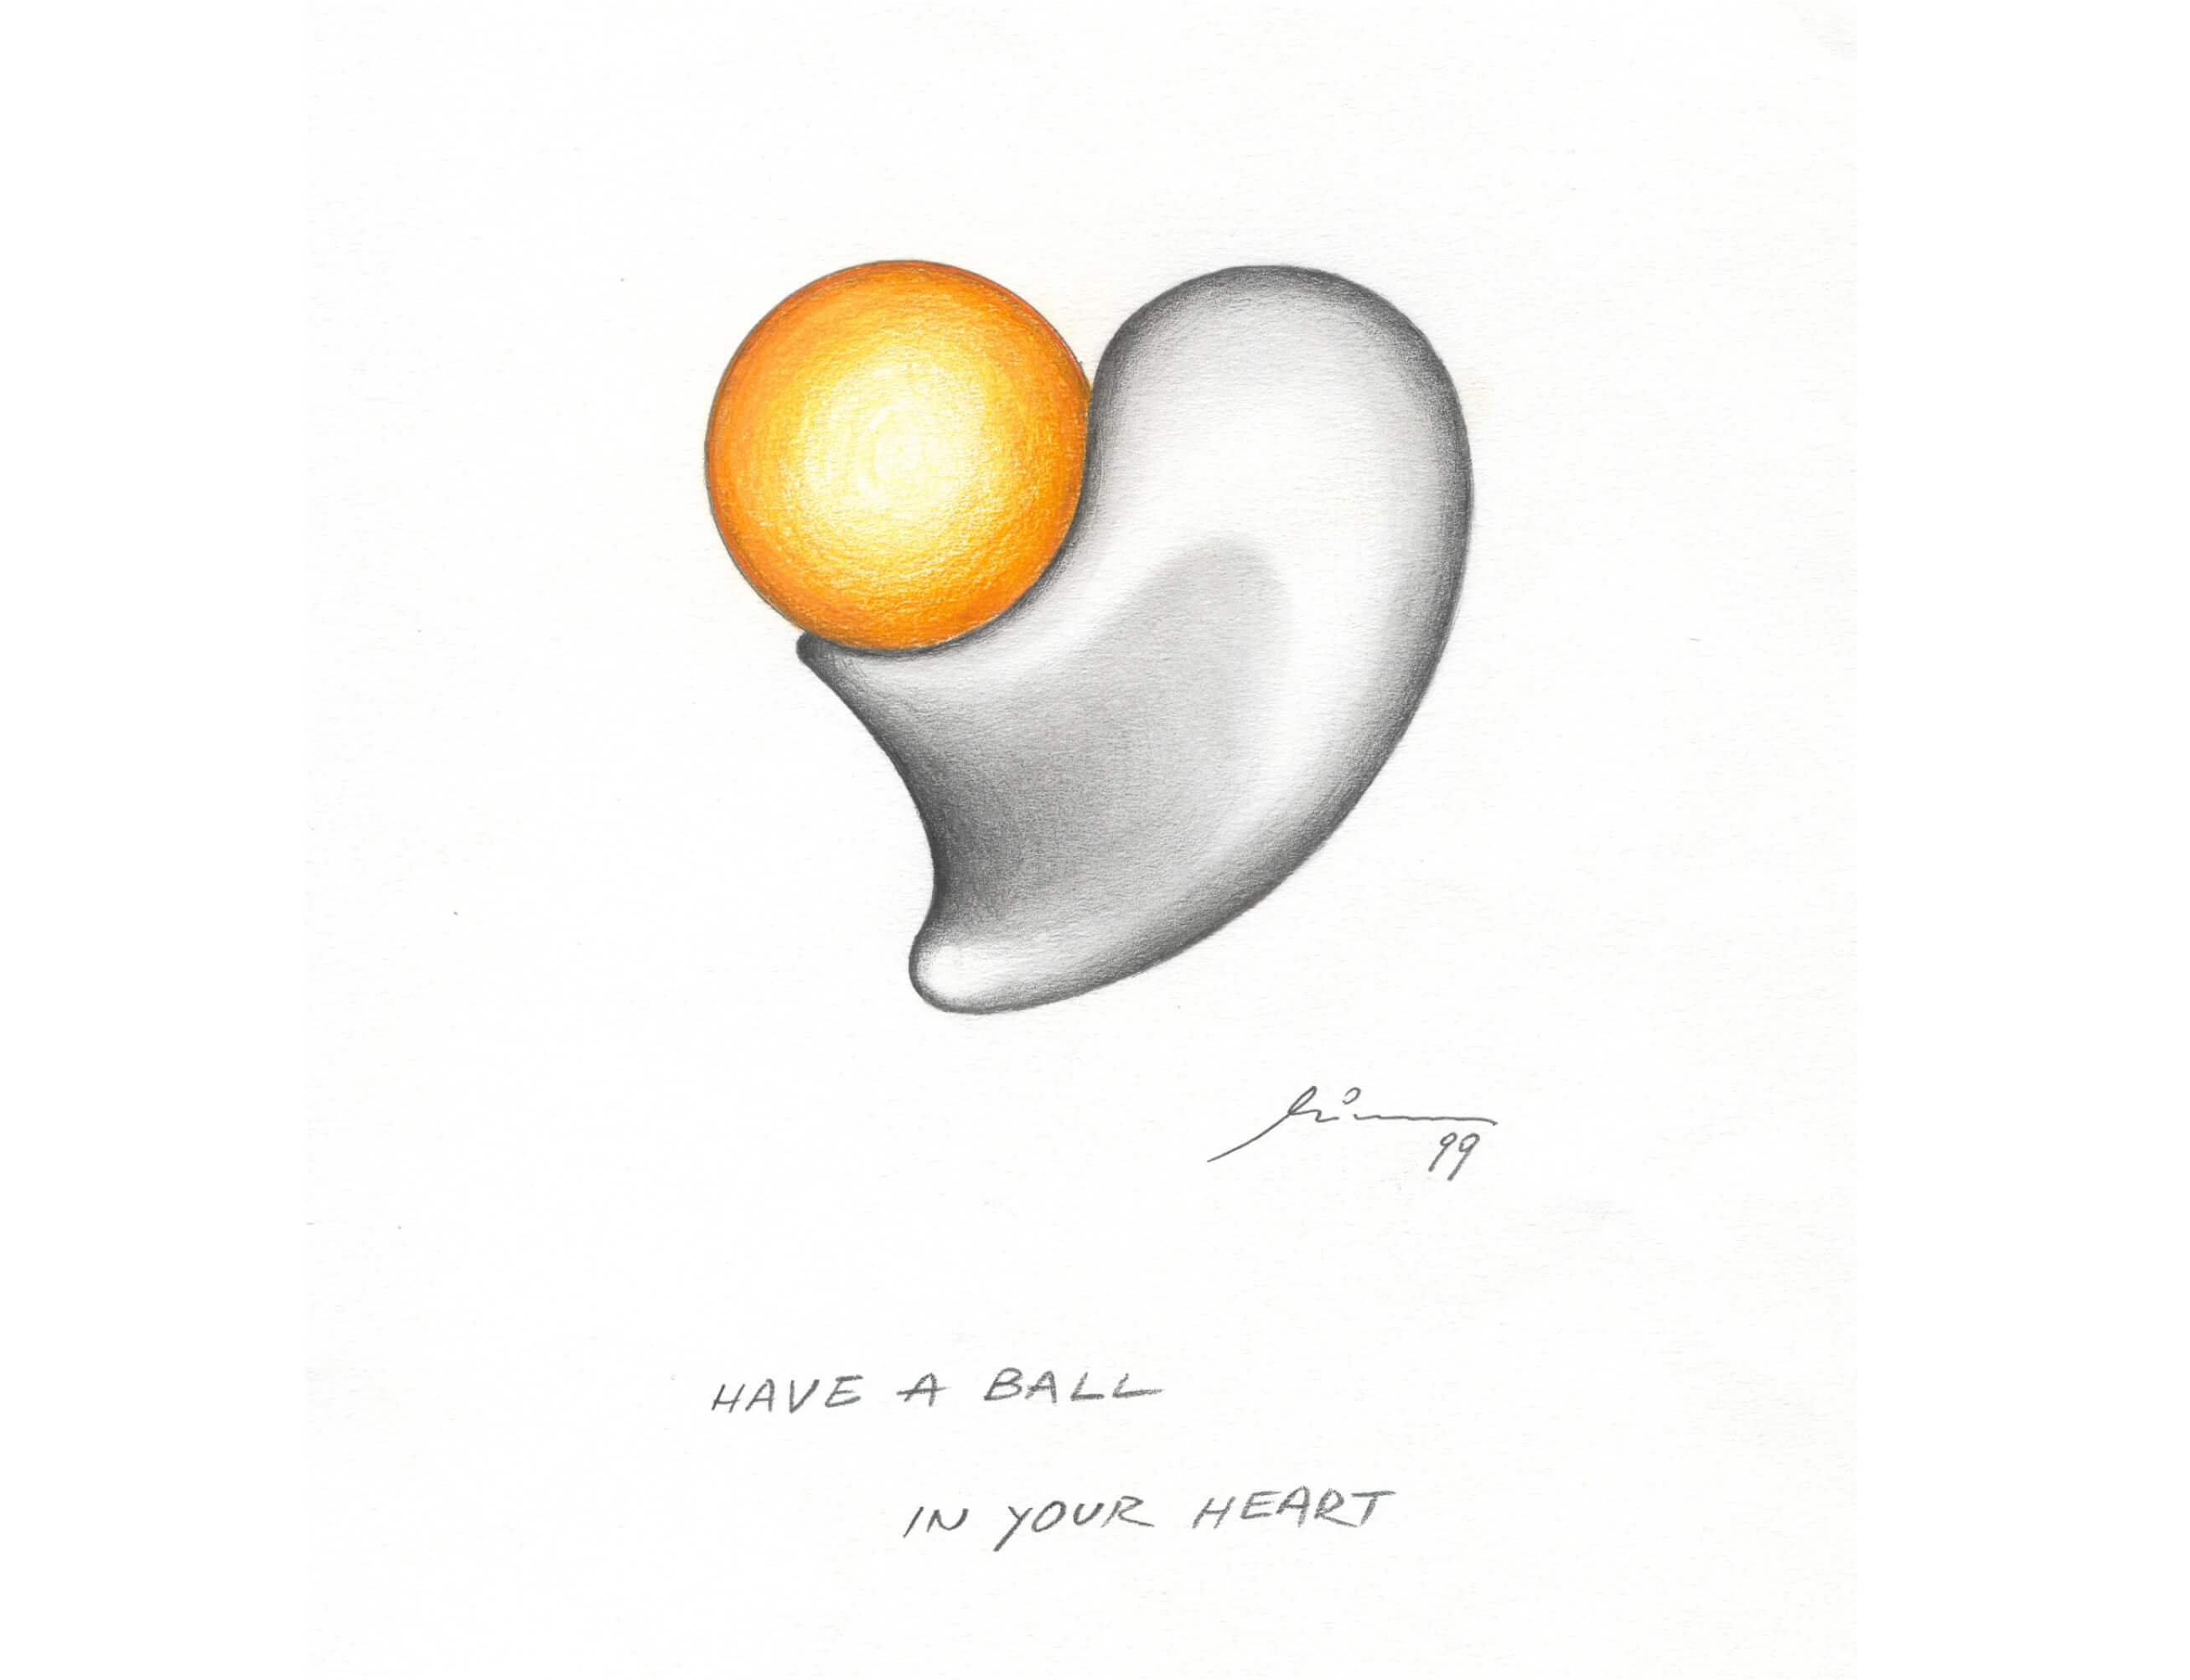 99
HAVE A BALL
IN YOUR HEART